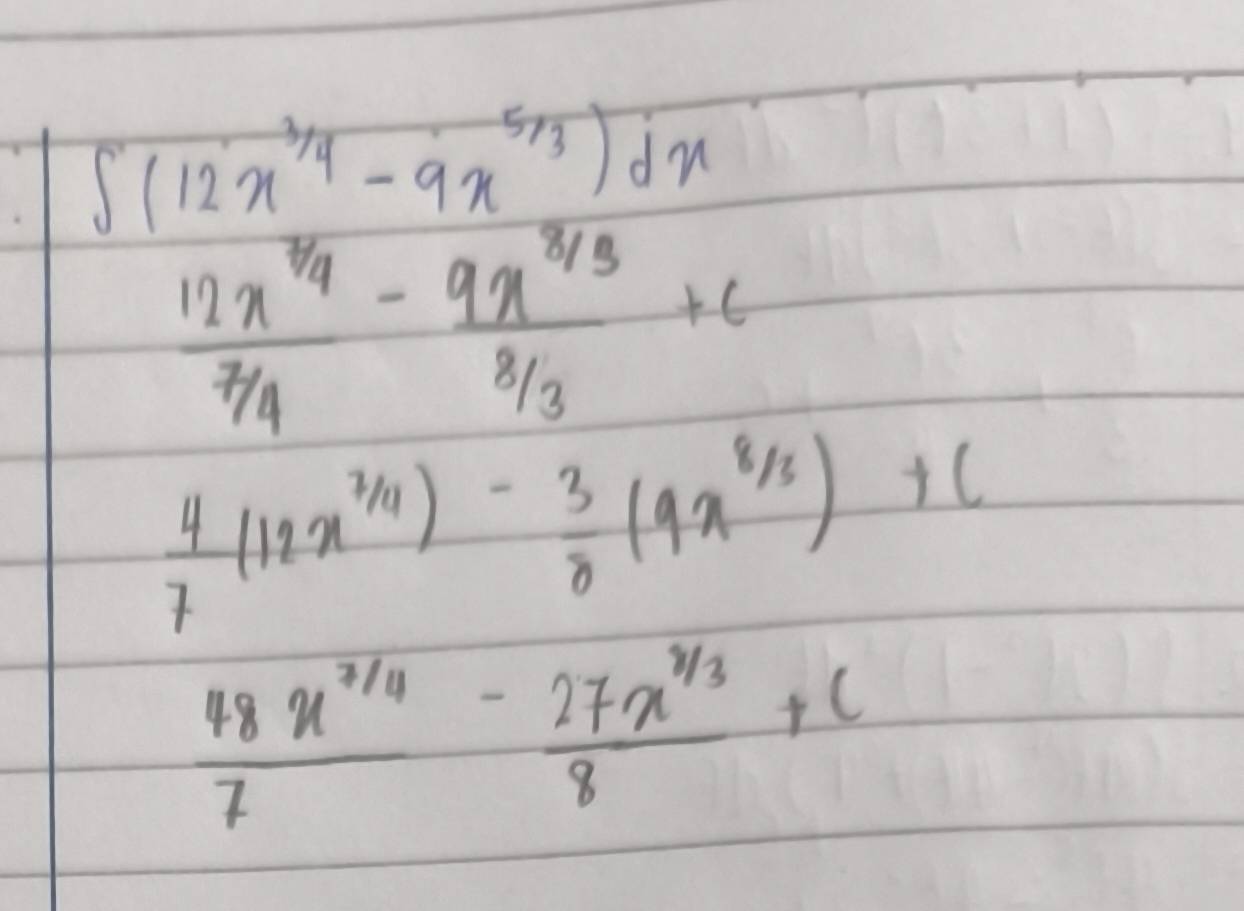 ∫(12x^{3/4} - 9x^{5/3})dx
\frac{12x^{7/4}}{7/4} - \frac{9x^{8/3}}{8/3} + C
\frac{4}{7}(12x^{7/4}) - \frac{3}{8}(9x^{8/3}) + C
\frac{48x^{7/4}}{7} - \frac{27x^{8/3}}{8} + C